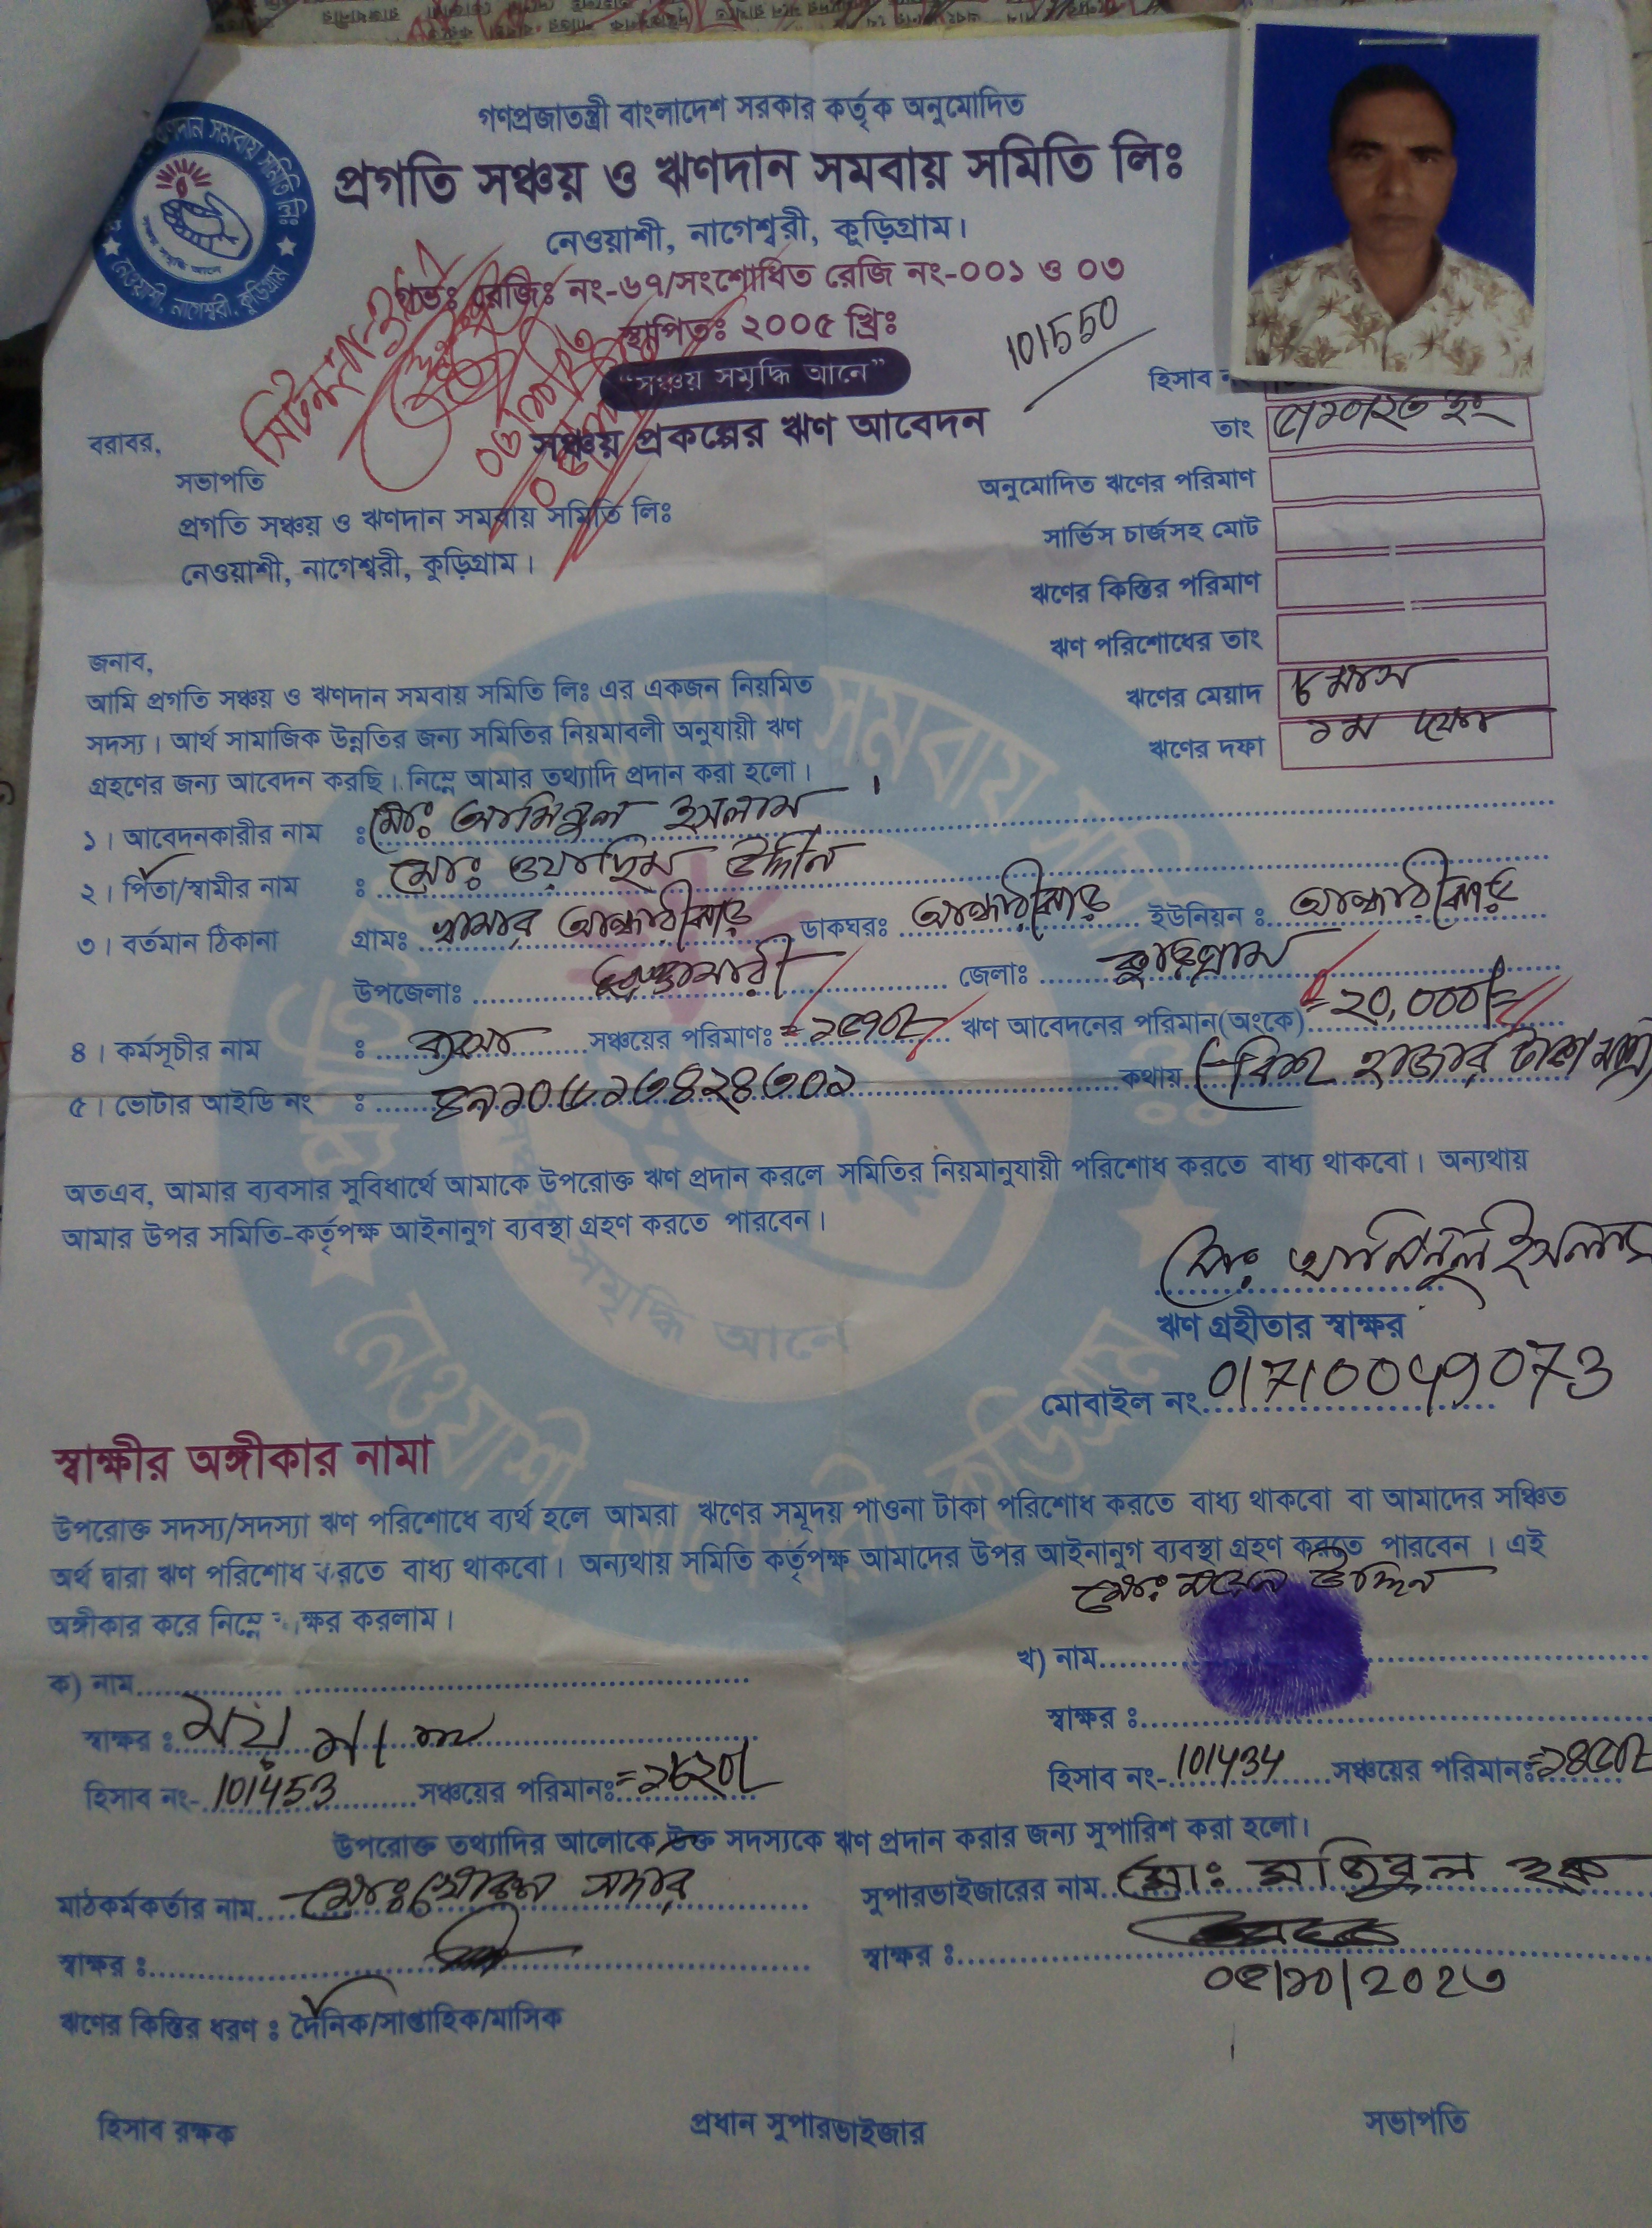 গণপ্রজাতন্ত্রী বাংলাদেশ সরকার কর্তৃক অনুমোদিত
প্রগতি সঞ্চয় ও ঋণদান সমবায় সমিতি লিঃ
নেওয়াশী, নাগেশ্বরী, কুড়িগ্রাম।
গভঃ রেজিঃ নং-৬৭/সংশোধিত রেজি নং-০০১ ও ০৩
স্থাপিতঃ ২০০৫ খ্রিঃ
101550
"সঞ্চয় সমৃদ্ধি আনে"
হিসাব
সঞ্চয় প্রকল্পের ঋণ আবেদন
তাং
বরাবর,
সভাপতি
প্রগতি সঞ্চয় ও ঋণদান সমবায় সমিতি লিঃ
নেওয়াশী, নাগেশ্বরী, কুড়িগ্রাম।
অনুমোদিত ঋণের পরিমাণ
সার্ভিস চার্জসহ মোট
ঋণের কিস্তির পরিমাণ
ঋণ পরিশোধের তাং
ঋণের মেয়াদ ৮ মাস
ঋণের দফা ১ম দফা
জনাব,
আমি প্রগতি সঞ্চয় ও ঋণদান সমবায় সমিতি লিঃ এর একজন নিয়মিত
সদস্য। আর্থ সামাজিক উন্নতির জন্য সমিতির নিয়মাবলী অনুযায়ী ঋণ
গ্রহণের জন্য আবেদন করছি। নিম্নে আমার তথ্যাদি প্রদান করা হলো।
১। আবেদনকারীর নাম : মোঃ আমিনুল ইসলাম
২। পিতা/স্বামীর নাম : মোঃ ওয়াহিম উদ্দীন
৩। বর্তমান ঠিকানা গ্রামঃ খামার আন্ধারীঝাড় ডাকঘরঃ আন্ধারীঝাড় ইউনিয়ন : আন্ধারীঝাড়
উপজেলাঃ ভুরুঙ্গামারী জেলাঃ কুড়িগ্রাম
৪। কর্মসূচীর নাম : ব্যবসা সঞ্চয়ের পরিমাণঃ ঋণ আবেদনের পরিমান(অংকে) =২০,০০০/=
৫। ভোটার আইডি নং : কথায় (বিশ হাজার টাকা মাত্র)
অতএব, আমার ব্যবসার সুবিধার্থে আমাকে উপরোক্ত ঋণ প্রদান করলে সমিতির নিয়মানুযায়ী পরিশোধ করতে বাধ্য থাকবো। অন্যথায়
আমার উপর সমিতি-কর্তৃপক্ষ আইনানুগ ব্যবস্থা গ্রহণ করতে পারবেন।
মোঃ আমিনুল ইসলাম
ঋণ গ্রহীতার স্বাক্ষর
মোবাইল নং 01710049073
স্বাক্ষীর অঙ্গীকার নামা
উপরোক্ত সদস্য/সদস্যা ঋণ পরিশোধে ব্যর্থ হলে আমরা ঋণের সমূদয় পাওনা টাকা পরিশোধ করতে বাধ্য থাকবো বা আমাদের সঞ্চিত
অর্থ দ্বারা ঋণ পরিশোধ করতে বাধ্য থাকবো। অন্যথায় সমিতি কর্তৃপক্ষ আমাদের উপর আইনানুগ ব্যবস্থা গ্রহণ করতে পারবেন। এই
অঙ্গীকার করে নিম্নে স্বাক্ষর করলাম।
মোঃ ময়েন উদ্দিন
ক) নাম
খ) নাম
স্বাক্ষর :
স্বাক্ষর :
হিসাব নং- 101453 সঞ্চয়ের পরিমানঃ
হিসাব নং- 101434 সঞ্চয়ের পরিমানঃ
উপরোক্ত তথ্যাদির আলোকে উক্ত সদস্যকে ঋণ প্রদান করার জন্য সুপারিশ করা হলো।
মাঠকর্মকর্তার নাম মোঃ
সুপারভাইজারের নাম মোঃ মতিবুল হক
স্বাক্ষর :
স্বাক্ষর :
০৫/১০/২০২৩
ঋণের কিস্তির ধরণ : দৈনিক/সাপ্তাহিক/মাসিক
হিসাব রক্ষক
প্রধান সুপারভাইজার
সভাপতি